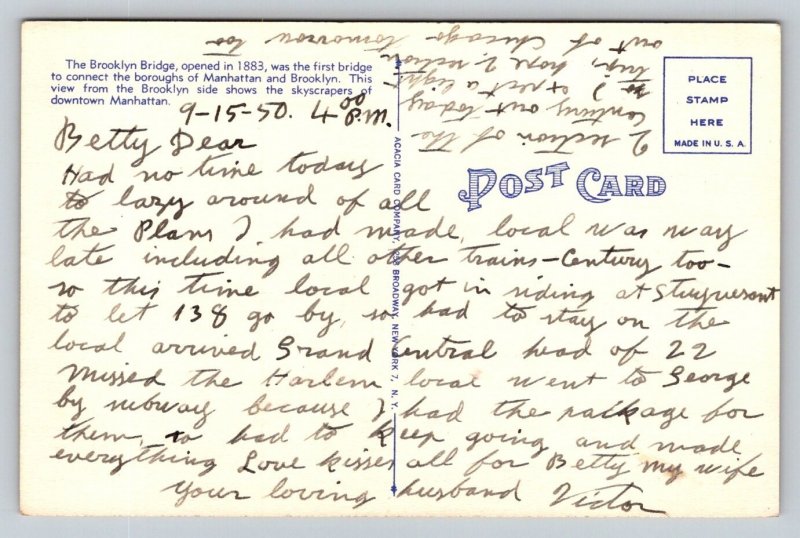 The Brooklyn Bridge, opened in 1883, was the first bridge
to connect the boroughs of Manhattan and Brooklyn. This
view from the Brooklyn side shows the skyscrapers of
downtown Manhattan.
PLACE
STAMP
HERE
MADE IN U. S. A.
POST CARD
ACACIA CARD COMPANY, 258 BROADWAY, NEW YORK 7, N. Y.
9-15-50. 4 00 P.M.
Betty Dear
Had no time today
to lazy around of all
the Plans I had made, local was way
late including all other trains - Century too -
so this time local got in siding at Stuyvesant
to let 138 go by, so had to stay on the
local arrived Grand Central head of 22
Missed the Harlem local went to George
by subway because I had the package for
them, so had to keep going and made
everything Love kisses all for Betty my wife
Your loving husband Victor
2 section of the
Century out today
so I expect a light
trip, hope 2 section
out of Chicago tomorrow too